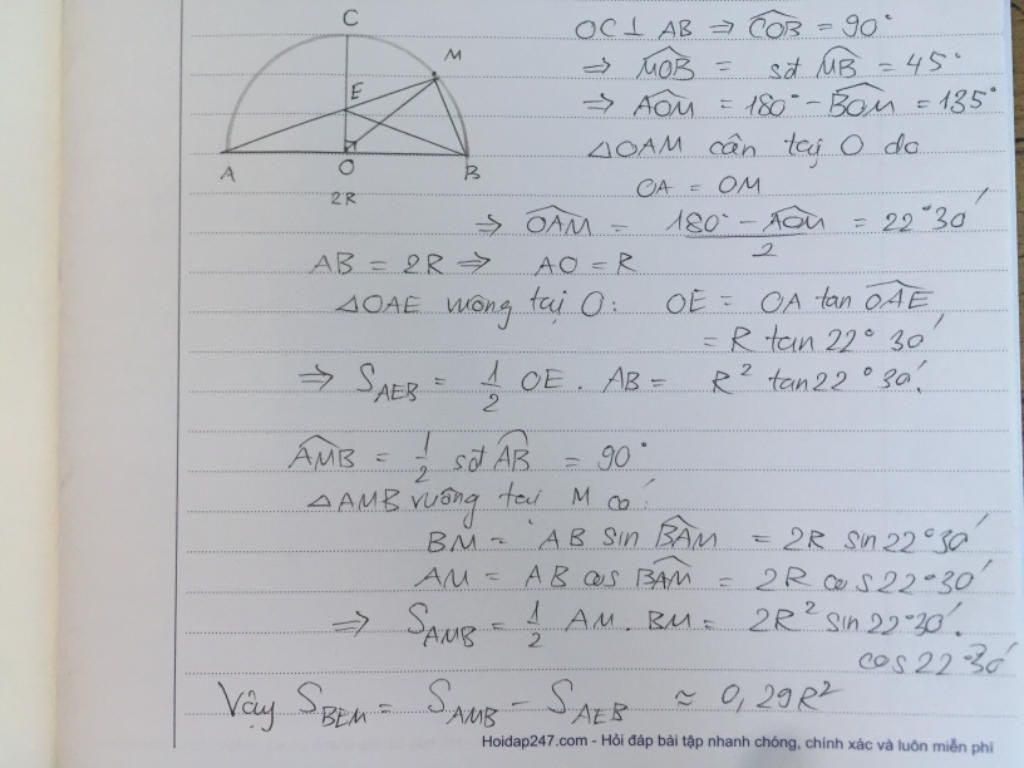 C
M
E
A
O
B
2R
OC ⊥ AB ⇒ $\widehat{COB}$ = 90°
⇒ $\widehat{MOB}$ = sđ $\widehat{MB}$ = 45°
⇒ $\widehat{AOM}$ = 180° - $\widehat{BOM}$ = 135°
△OAM cân tại O do
OA = OM
⇒ $\widehat{OAM}$ = $\frac{180° - \widehat{AOM}}{2}$ = 22°30'
AB = 2R ⇒ AO = R
△OAE vuông tại O: OE = OA tan $\widehat{OAE}$
= R tan 22°30'
⇒ $S_{AEB}$ = $\frac{1}{2}$ OE. AB = R² tan 22°30'.
$\widehat{AMB}$ = $\frac{1}{2}$ sđ $\widehat{AB}$ = 90°
△AMB vuông tại M có:
BM = AB sin $\widehat{BAM}$ = 2R sin 22°30'
AM = AB cos $\widehat{BAM}$ = 2R cos 22°30'
⇒ $S_{AMB}$ = $\frac{1}{2}$ AM. BM = 2R² sin 22°30'.
cos 22°30'
Vậy $S_{BEM}$ = $S_{AMB}$ - $S_{AEB}$ ≈ 0,29R²
Hoidap247.com - Hỏi đáp bài tập nhanh chóng, chính xác và luôn miễn phí